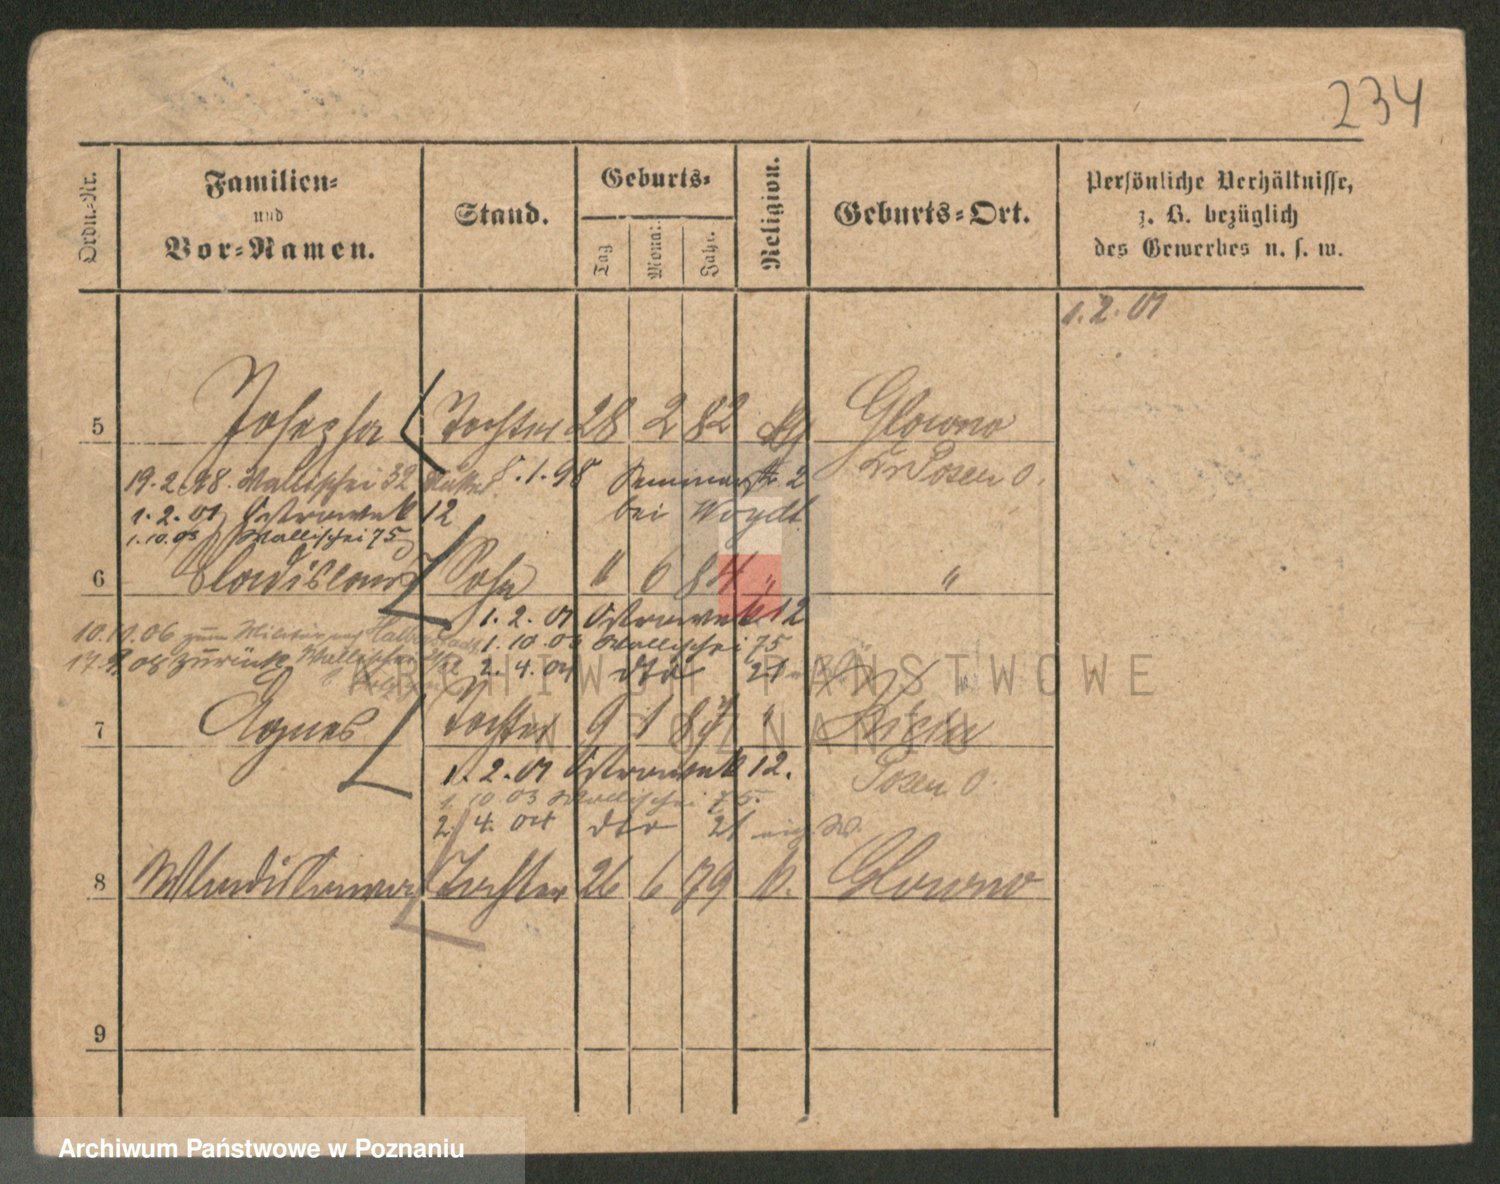 234
Ordn.-Nr.
Familien-
und
Vor-Namen.
Stand.
Geburts-
Tag
Mona:
Jahr.
Religion.
Geburts-Ort.
Persönliche Verhältnisse,
z. B. bezüglich
des Gewerbes u. s. w.
1.2.01
5 Josepha Tochter 28 2 82 Glowno
Kr. Posen O.
19.2.98. Wallischei 32 8.1.98 Seminarstr 2
1.2.01 Ostrowek 12 bei Woydt
1.10.03 Wallischei 75
6 Wladislaus Sohn " 6 84 " "
1.2.01 Ostrowek 12
10.10.06 zum Militär nach Halberstadt 1.10.03 Wallischei 75
17.9.08 zurück Wallischei 2. 4. 04 dto 21
7 Agnes Tochter 9 1 87 "
Posen O.
1.2.01 Ostrowek 12.
1.10.03 Wallischei 75.
2. 4. 04 dto 21
8 Wladislawa Tochter 26 6 79 k. Glowno
9
ARCHIWUM PAŃSTWOWE
W POZNANIU
Archiwum Państwowe w Poznaniu